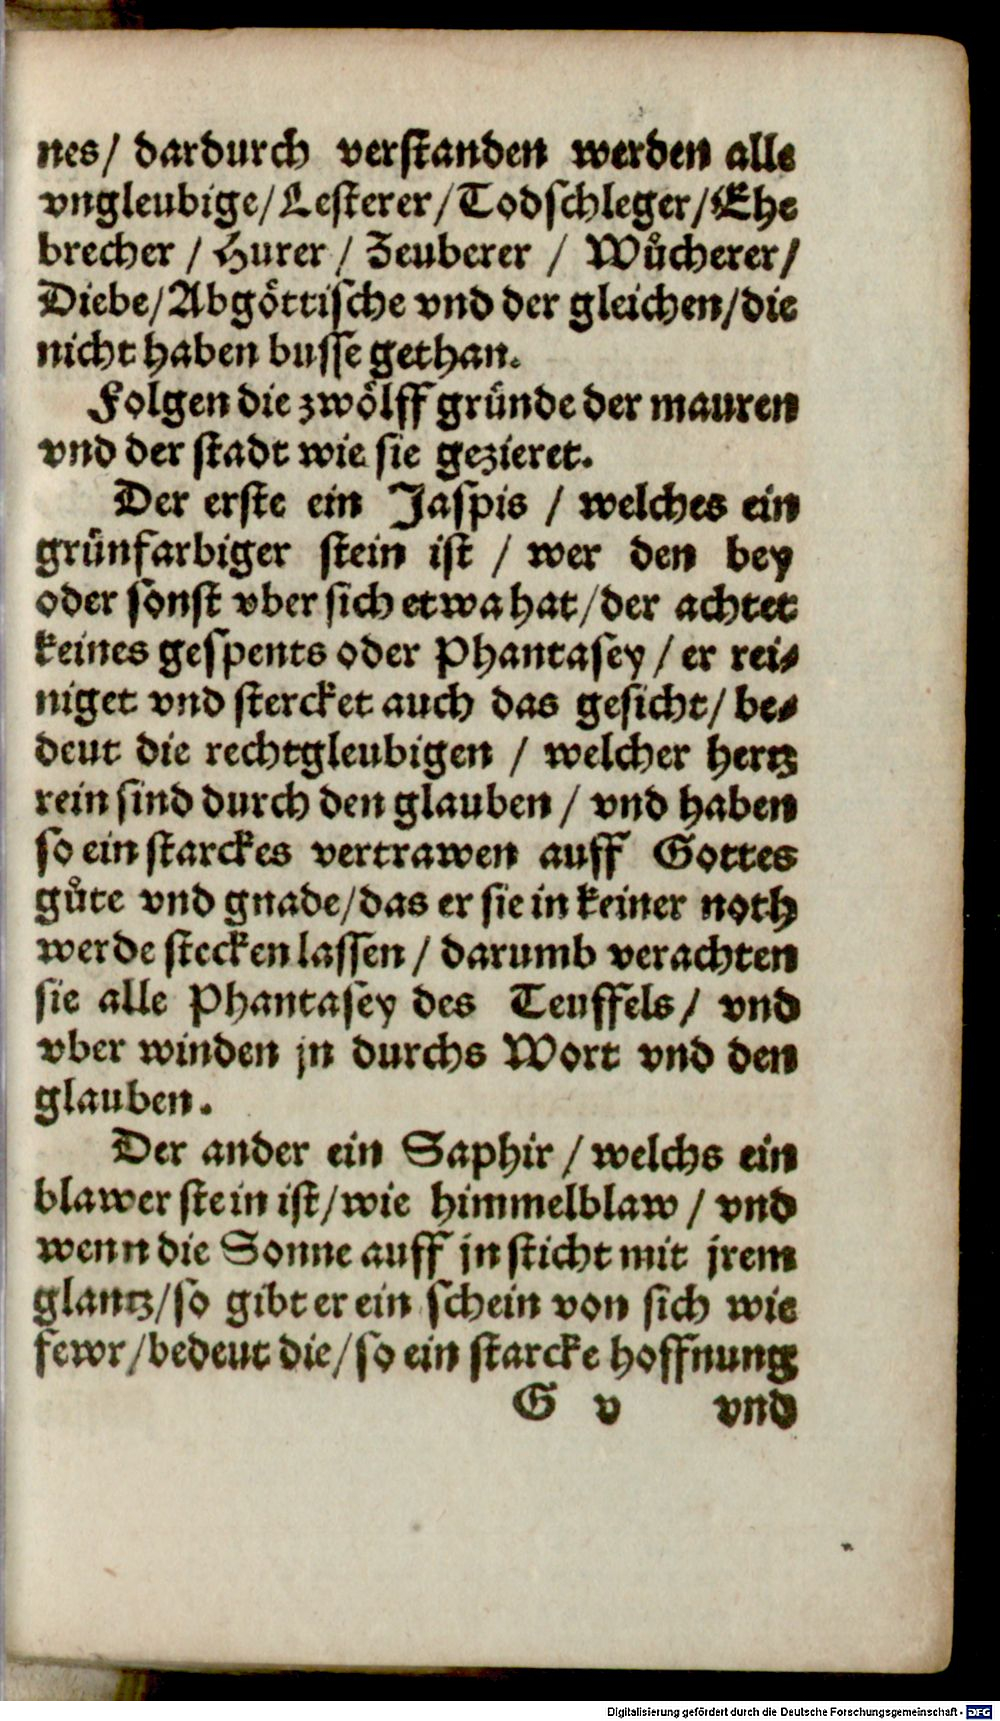 nes/ dardurch verstanden werden alle
vngleubige/Lesterer/Todschleger/Ehe
brecher / Hurer / Zeuberer / Wůcherer/
Diebe/Abgöttische vnd der gleichen/die
nicht haben busse gethan.
Folgen die zwölff gründe der mauren
vnd der stadt wie sie gezieret.
Der erste ein Jaspis / welches ein
grünfarbiger stein ist / wer den bey
oder sonst vber sich etwa hat/der achtet
keines gespents oder Phantasey / er rei⸗
niget vnd stercket auch das gesicht/ be⸗
deut die rechtgleubigen / welcher hertz
rein sind durch den glauben / vnd haben
so ein starckes vertrawen auff Gottes
gůte vnd gnade/das er sie in keiner noth
werde stecken lassen / darumb verachten
sie alle Phantasey des Teuffels/ vnd
vber winden jn durchs Wort vnd den
glauben.
Der ander ein Saphir / welchs ein
blawer stein ist/wie himmelblaw / vnd
wenn die Sonne auff jn sticht mit jrem
glantz/so gibt er ein schein von sich wie
fewr/bedeut die/so ein starcke hoffnung
G v vnd
Digitalisierung gefördert durch die Deutsche Forschungsgemeinschaft - DFG